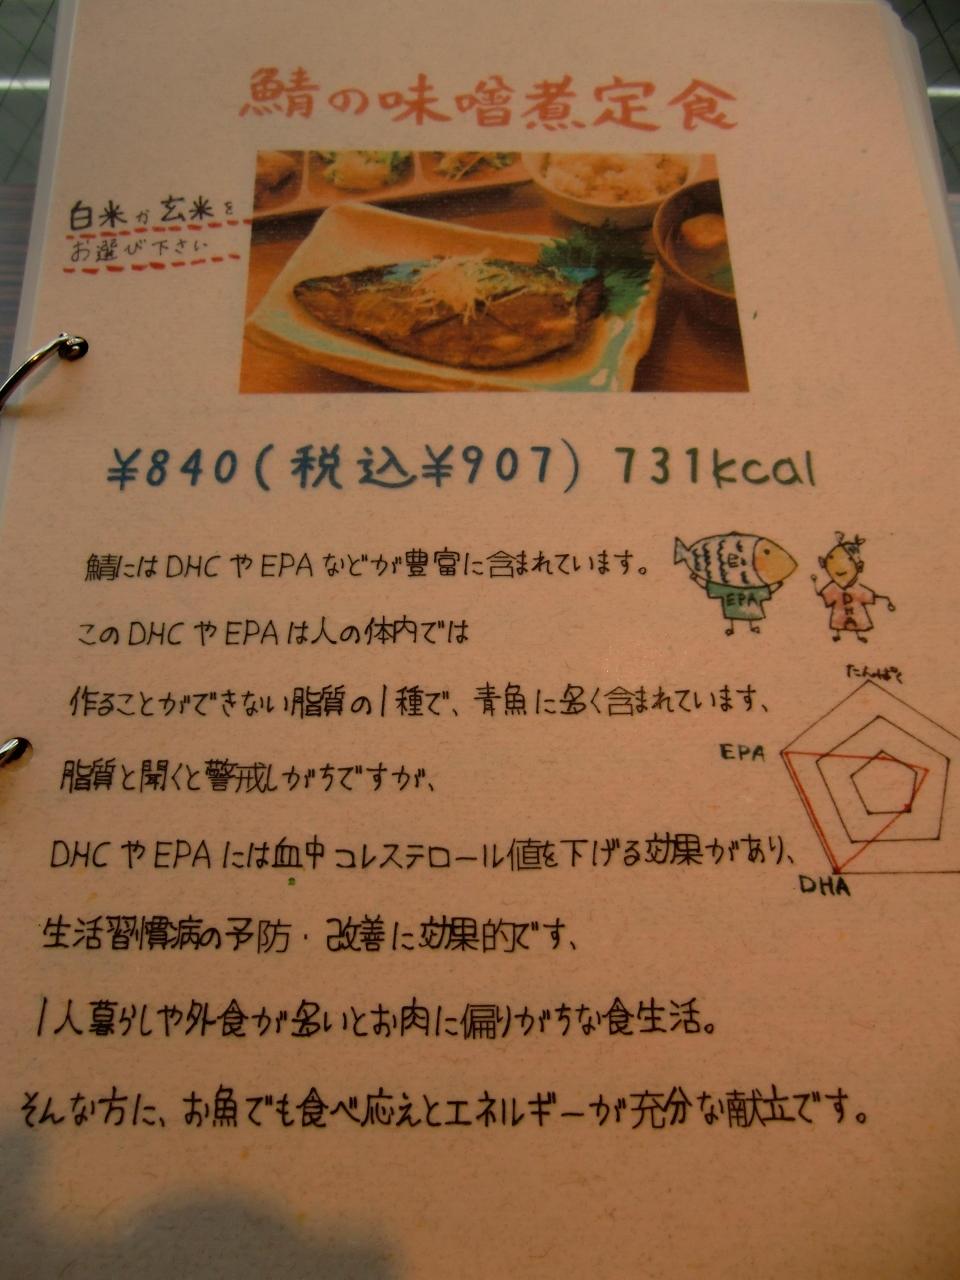 鯖の味噌煮定食
白米か玄米を
お選び下さい
¥840(税込¥907) 731kcal
鯖にはDHCやEPAなどが豊富に含まれています。
EPA
DHA
このDHCやEPAは人の体内では
作ることができない脂質の1種で、青魚に多く含まれています、
たんぱく
EPA
脂質と聞くと警戒しがちですが、
DHCやEPAには血中コレステロール値を下げる効果があり、
DHA
生活習慣病の予防・改善に効果的です、
1人暮らしや外食が多いとお肉に偏りがちな食生活。
そんな方に、お魚でも食べ応えとエネルギーが充分な献立です。